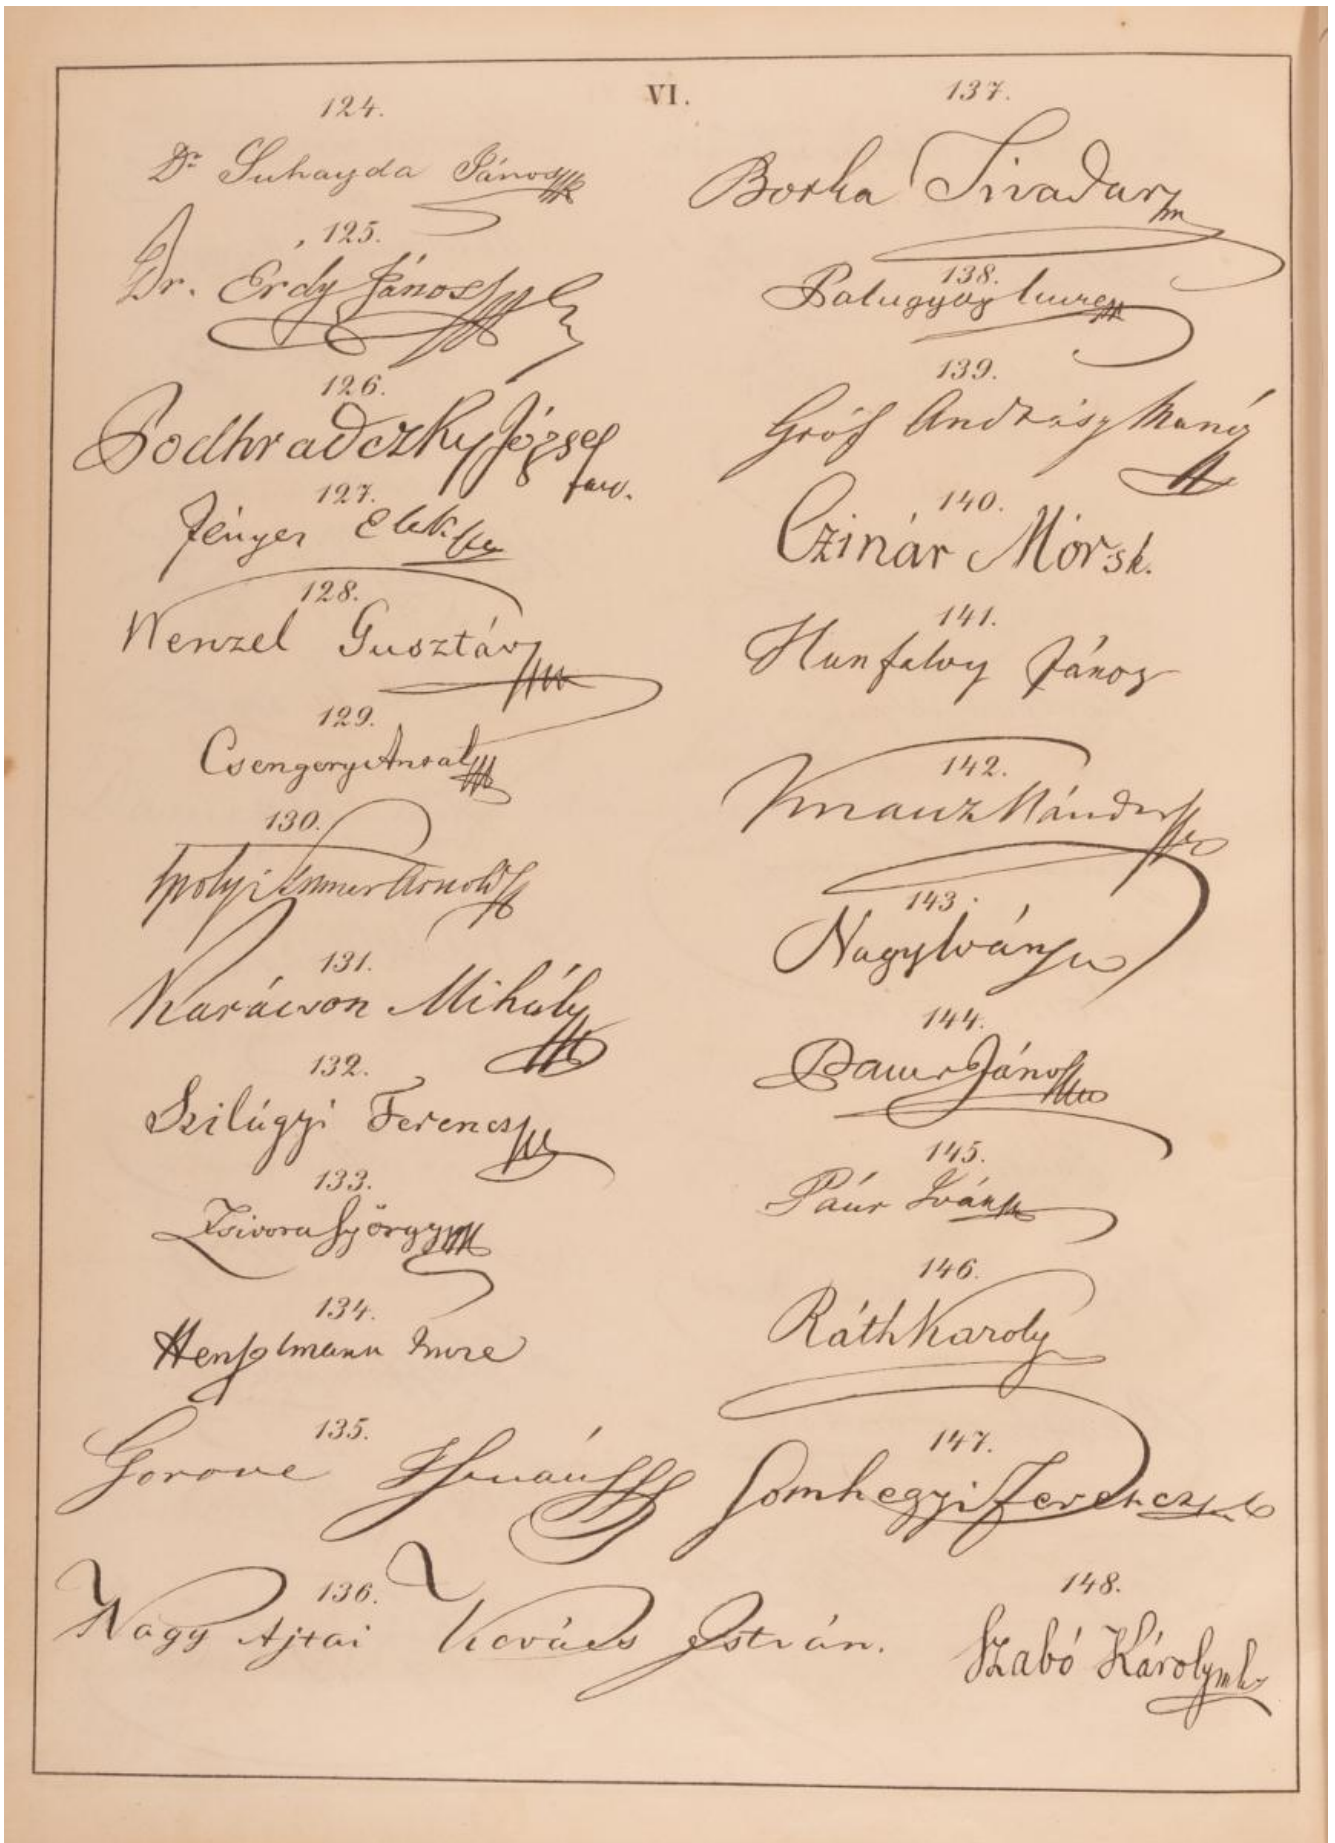 VI.
124.
Dr Suhayda János
125.
Dr. Érdy János
126.
Podhradczky József
127.
Fényes Elek
128.
Wenzel Gusztáv
129.
Csengery Antal
130.
Ipolyi Stummer Arnold
131.
Karácson Mihály
132.
Szilágyi Ferencz
133.
Zsivora György
134.
Henszlmann Imre
135.
Gorove István
136.
Nagy Ajtai Kovács István.
137.
Botka Tivadar
138.
Palugyay Imre
139.
Gróf Andrásy Manó
140.
Czinár Mór sk.
141.
Hunfalvy János
142.
Knauz Nándor
143.
Nagy Iván
144.
Pauer János
145.
Páur Iván
146.
Ráth Károly
147.
Somhegyi Ferencz
148.
Szabó Károly mk